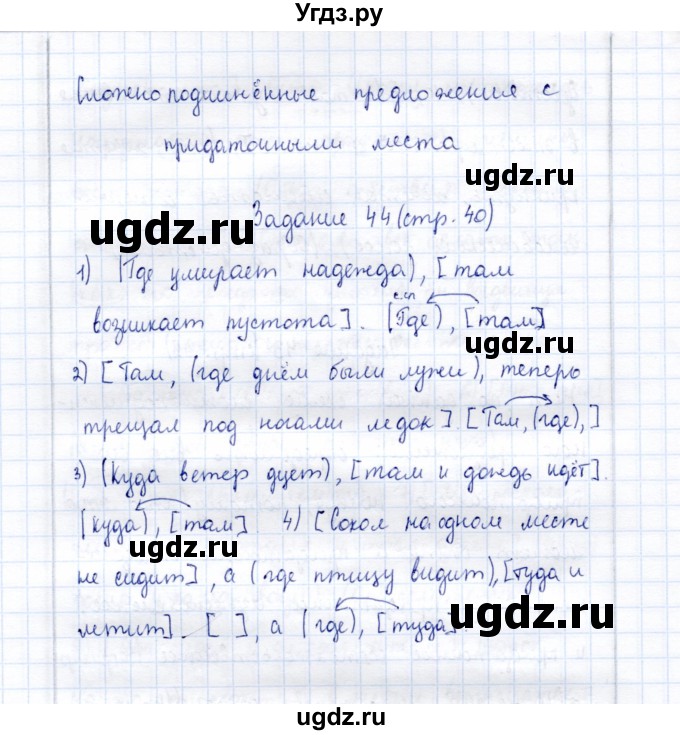 Угдз.ру
Сложноподчинённые предложения с
придаточными места
ugdz.ru
ugdz.ru
Задание 44 (стр. 40)
1) (Где умирает надежда), [там
возникает пустота]. (Где), [там]
ugdz.ru
2) [Там, (где днём были лужи), теперь
трещал под ногами ледок]. [Там, (где), ]
3) (Куда ветер дует), [там и дождь идёт].
(куда), [там]. 4) [Сокол на одном месте
ugdz.ru
не сидит], а (где птицу видит), [туда и
летит]. [ ], а (где), [туда].
ugdz.ru
ugdz.ru